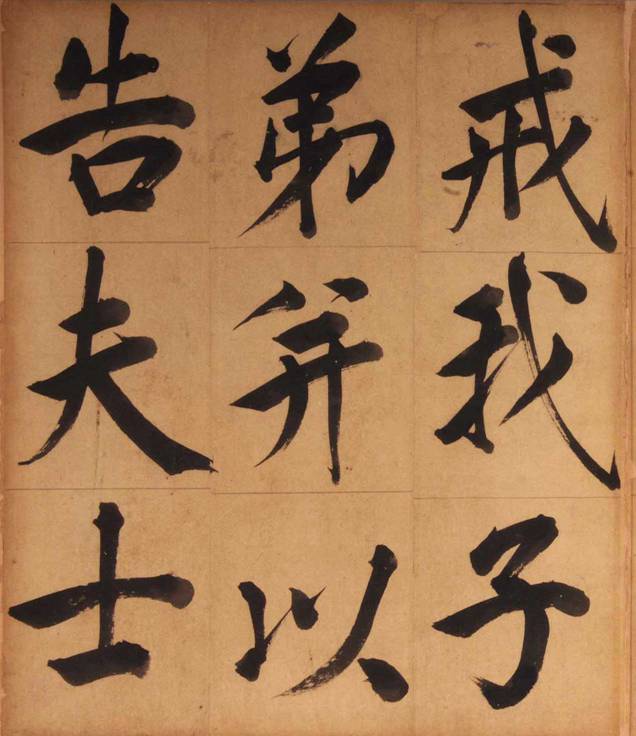 戒我子
弟并以
告夫士